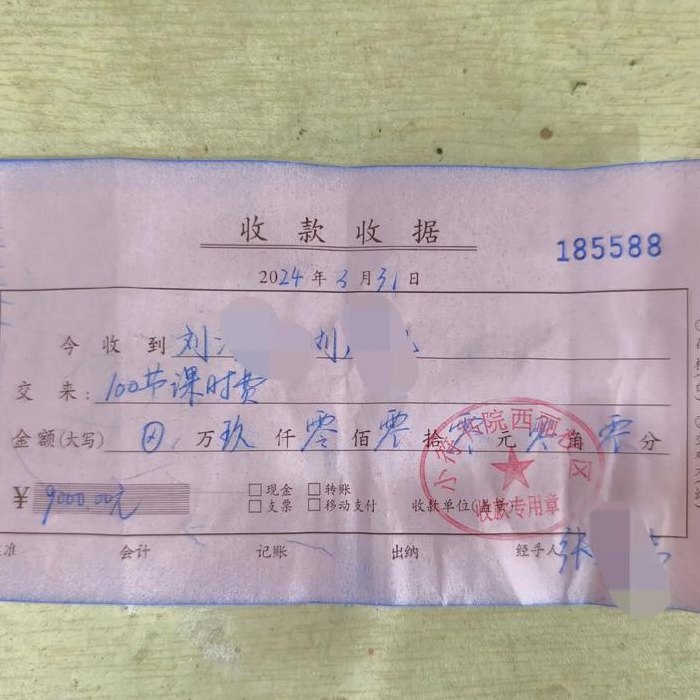 收款收据
185588
2024年3月31日
今收到 刘
交来：100节课时费
金额(大写) 万玖仟零佰零拾零元零角零分
¥ 9000.00元
□现金 □转账
□支票 □移动支付
收款单位(盖章)
收款专用章
会计 记账 出纳 经手人 张